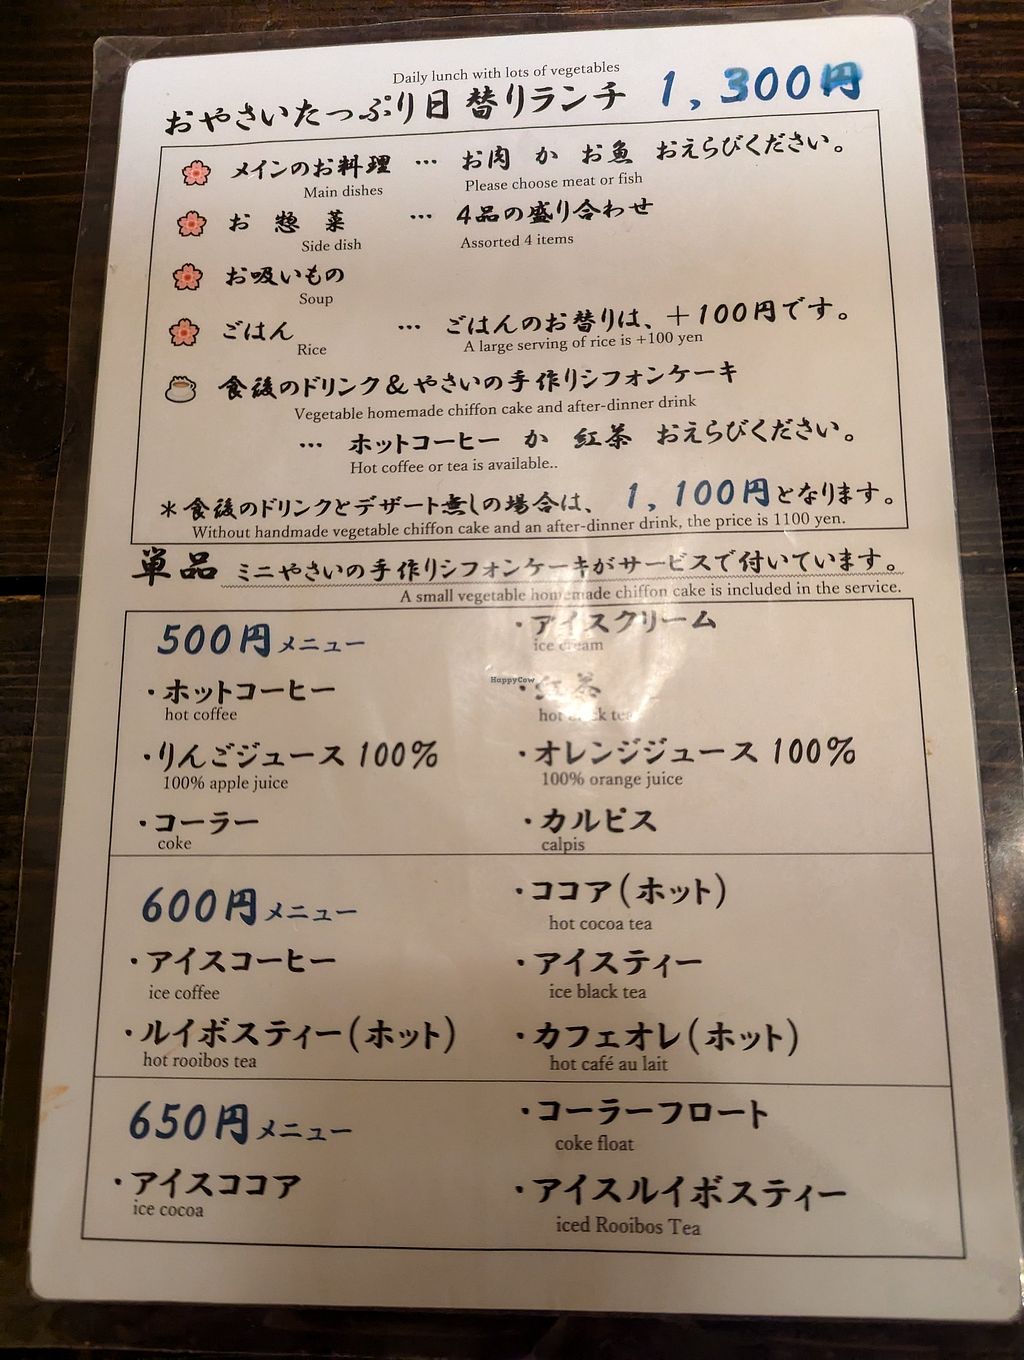 Daily lunch with lots of vegetables
おやさいたっぷり日替りランチ 1,300円
メインのお料理 … お肉 か お魚 おえらびください。
Main dishes Please choose meat or fish
お惣菜 … 4品の盛り合わせ
Side dish Assorted 4 items
お吸いもの
Soup
ごはん … ごはんのお替りは、+100円です。
Rice A large serving of rice is +100 yen
食後のドリンク&やさいの手作りシフォンケーキ
Vegetable homemade chiffon cake and after-dinner drink
… ホットコーヒー か 紅茶 おえらびください。
Hot coffee or tea is available..
*食後のドリンクとデザート無しの場合は、 1,100円となります。
Without handmade vegetable chiffon cake and an after-dinner drink, the price is 1100 yen.
単品 ミニやさいの手作りシフォンケーキがサービスで付いています。
A small vegetable homemade chiffon cake is included in the service.
500円メニュー
・ホットコーヒー
hot coffee
・りんごジュース 100%
100% apple juice
・コーラー
coke
・アイスクリーム
ice cream
HappyCow
・紅茶
hot black tea
・オレンジジュース 100%
100% orange juice
・カルピス
calpis
600円メニュー
・アイスコーヒー
ice coffee
・ルイボスティー(ホット)
hot rooibos tea
・ココア(ホット)
hot cocoa tea
・アイスティー
ice black tea
・カフェオレ(ホット)
hot café au lait
650円メニュー
・アイスココア
ice cocoa
・コーラーフロート
coke float
・アイスルイボスティー
iced Rooibos Tea